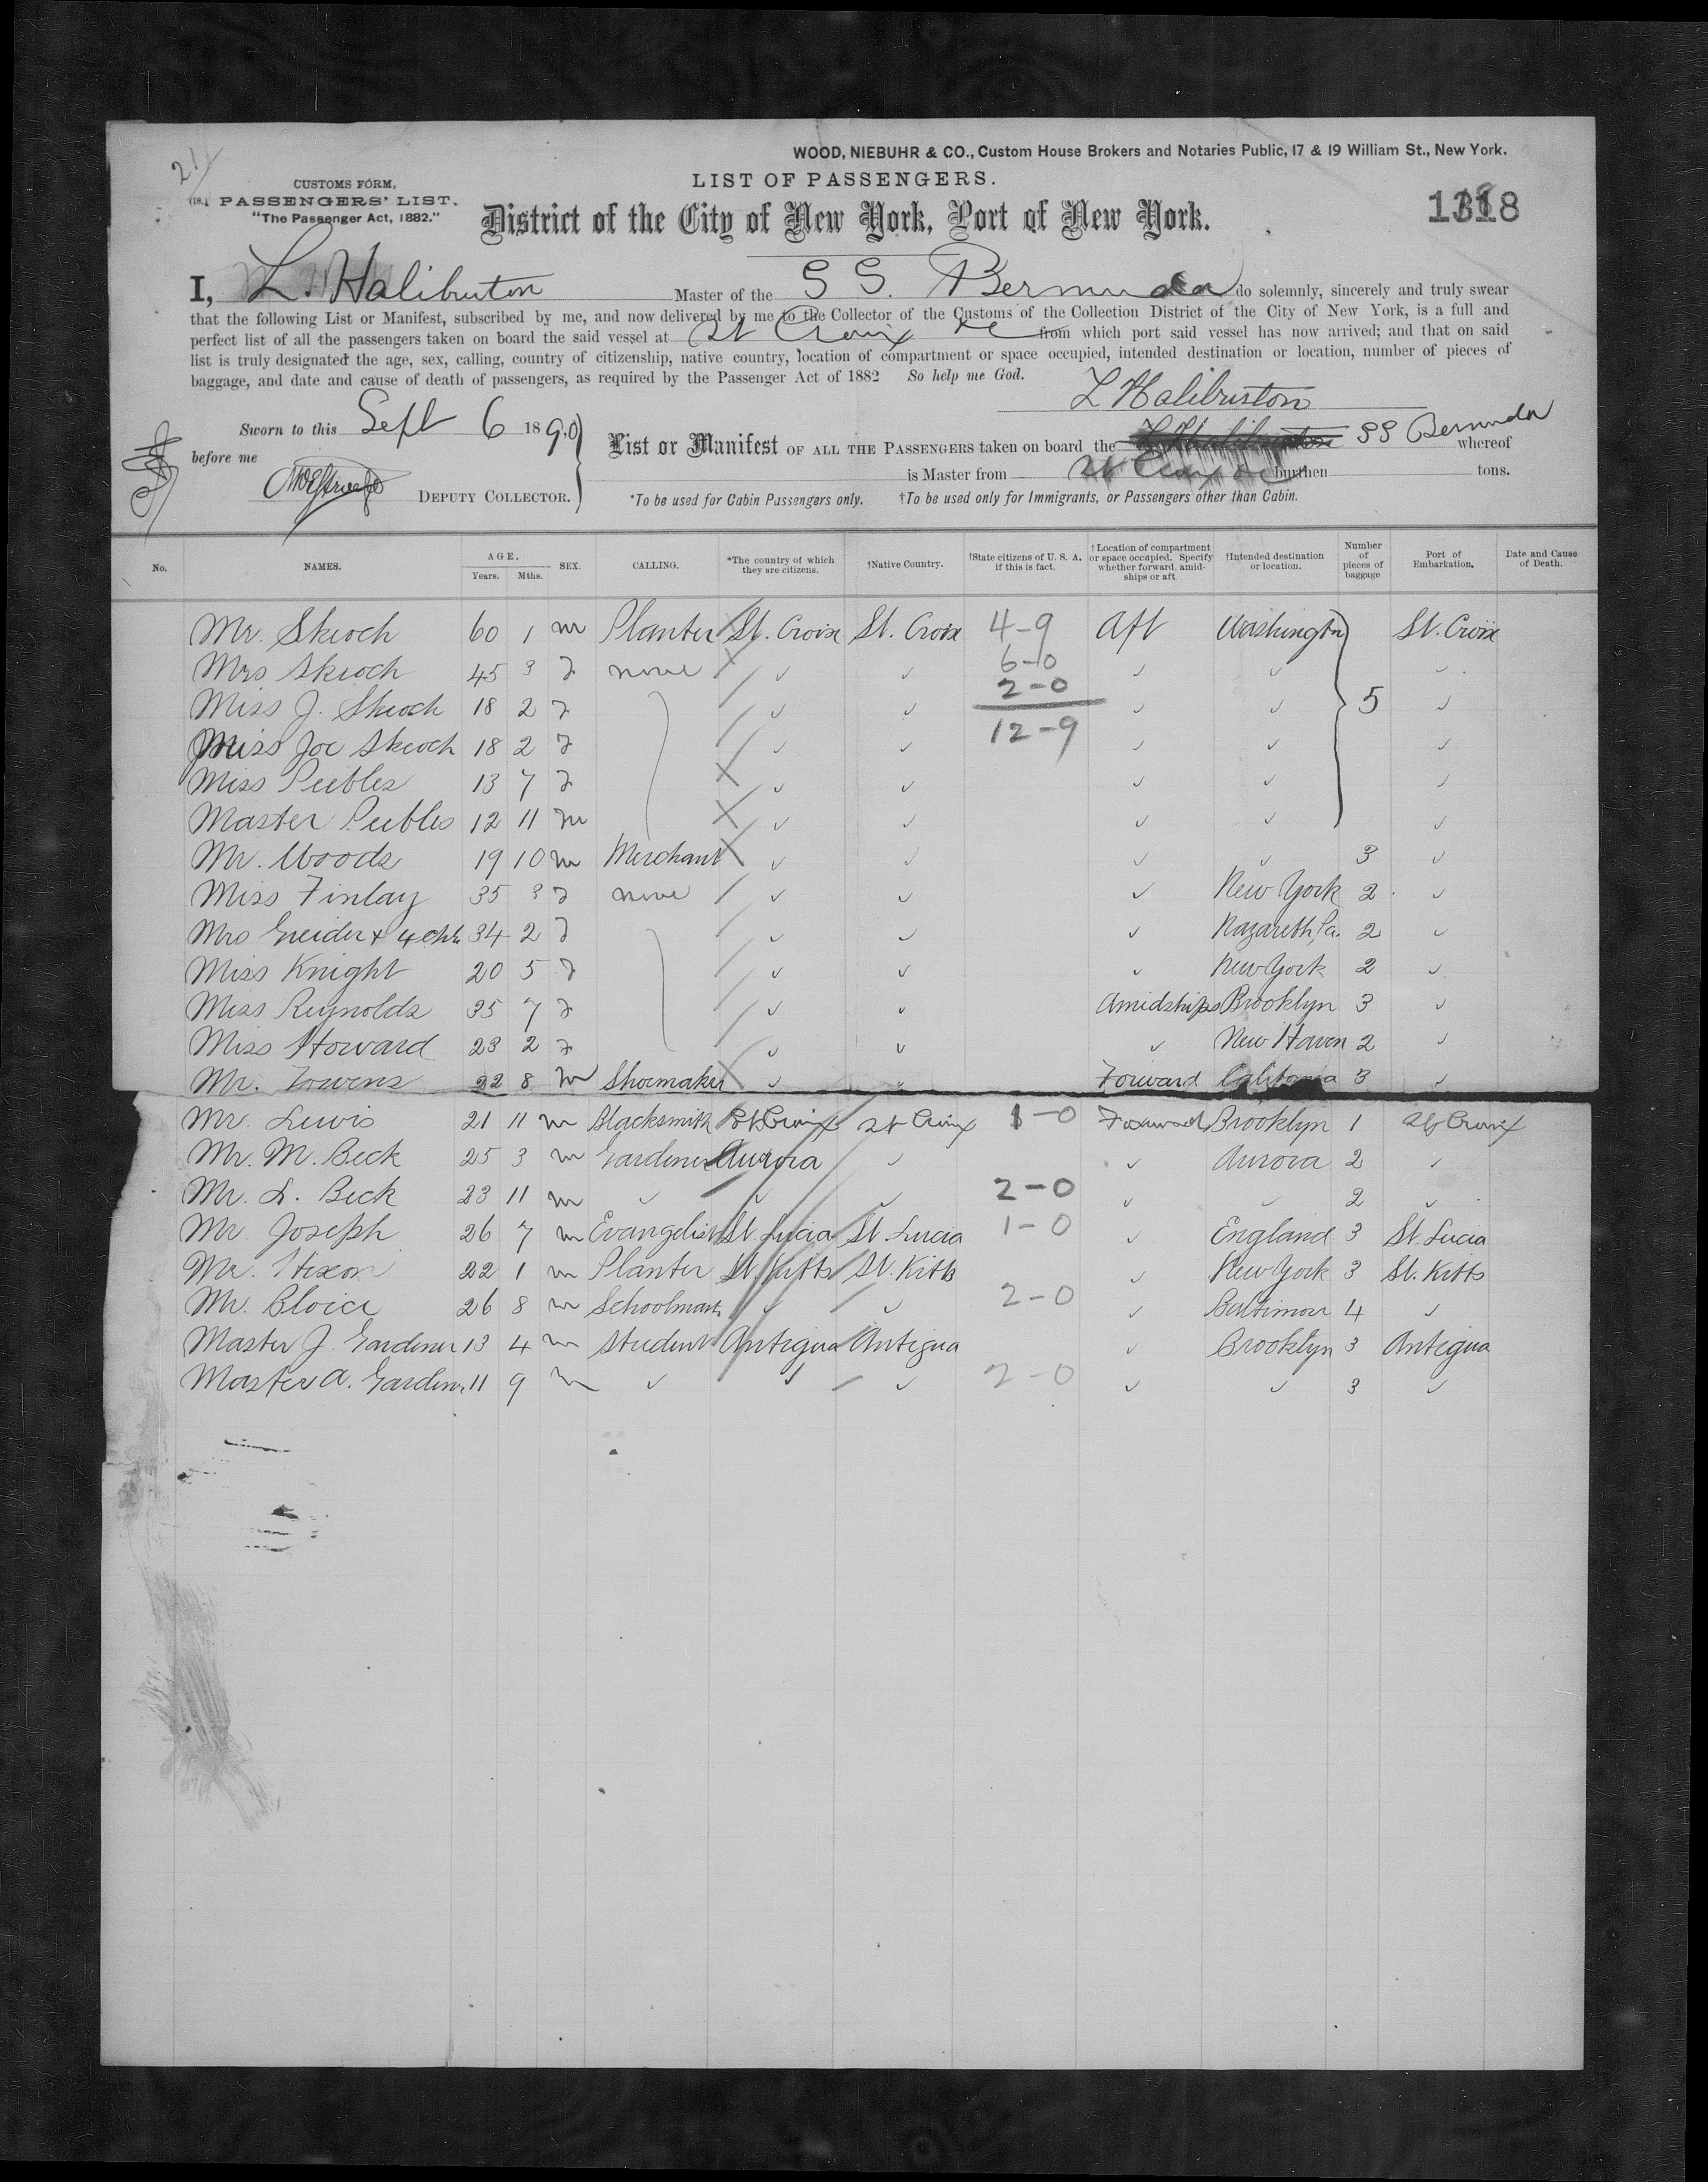 21/
WOOD, NIEBUHR & CO., Custom House Brokers and Notaries Public, 17 & 19 William St., New York.
CUSTOMS FORM,
PASSENGERS' LIST.
"The Passenger Act, 1882."
LIST OF PASSENGERS.
District of the City of New York, Port of New York.
I, L. Haliburton Master of the S S. Bermuda do solemnly, sincerely and truly swear
that the following List or Manifest, subscribed by me, and now delivered by me to the Collector of the Customs of the Collection District of the City of New York, is a full and
perfect list of all the passengers taken on board the said vessel at St Croix &c from which port said vessel has now arrived; and that on said
list is truly designated the age, sex, calling, country of citizenship, native country, location of compartment or space occupied, intended destination or location, number of pieces of
baggage, and date and cause of death of passengers, as required by the Passenger Act of 1882 So help me God.
L Haliburton
Sworn to this Sept 6 1890
before me
DEPUTY COLLECTOR.
List or Manifest OF ALL THE PASSENGERS taken on board the SS Bermuda whereof
is Master from St Croix &c burthen tons.
*To be used for Cabin Passengers only. †To be used only for Immigrants, or Passengers other than Cabin.
No. NAMES. AGE. Years. Mths. SEX. CALLING. *The country of which they are citizens. †Native Country. †State citizens of U. S. A. if this is fact. †Location of compartment or space occupied. Specify whether forward, amidships or aft. †Intended destination or location. Number of pieces of baggage Port of Embarkation. Date and Cause of Death.
Mr. Skeoch 60 1 m Planter St. Croix St. Croix 4-9 Aft Washington St. Croix
Mrs Skeoch 45 3 f none ✓ ✓ 6-0 ✓ ✓ ✓
Miss J. Skeoch 18 2 f ✓ ✓ 2-0 ✓ ✓ 5 ✓
Miss Joe Skeoch 18 2 f ✓ ✓ 12-9 ✓ ✓ ✓
Miss Peebles 13 7 f ✓ ✓ ✓ ✓ ✓
Master Peebles 12 11 m ✓ ✓ ✓ ✓ ✓
Mr. Woods 19 10 m Merchant ✓ ✓ ✓ ✓ 3 ✓
Miss Finlay 35 3 f none ✓ ✓ ✓ New York 2 ✓
Mrs Greider & 4 chil. 34 2 f ✓ ✓ ✓ Nazareth, Pa. 2 ✓
Miss Knight 20 5 f ✓ ✓ ✓ New York 2 ✓
Miss Reynolds 35 7 f ✓ ✓ Amidships Brooklyn 3 ✓
Miss Howard 23 2 f ✓ ✓ ✓ New Haven 2 ✓
Mr. 22 8 m Shoemaker ✓ ✓ Forward California 3 ✓
Mr. Lewis 21 11 m Blacksmith St Croix St Croix 1-0 Forward Brooklyn 1 St Croix
Mr. M. Beck 25 3 m Gardener Aurora ✓ ✓ Aurora 2 ✓
Mr. L. Beck 23 11 m ✓ ✓ ✓ 2-0 ✓ ✓ 2 ✓
Mr. Joseph 26 7 m Evangelist St. Lucia St. Lucia 1-0 ✓ England 3 St. Lucia
Mr. Hixon 22 1 m Planter St. Kitts St. Kitts ✓ New York 3 St. Kitts
Mr. Bloice 26 8 m Schoolmast. ✓ ✓ 2-0 ✓ Baltimore 4 ✓
Master J. Gardener 13 4 m Student Antigua Antigua ✓ Brooklyn 3 Antigua
Master A. Gardener 11 9 m ✓ ✓ ✓ 2-0 ✓ ✓ 3 ✓